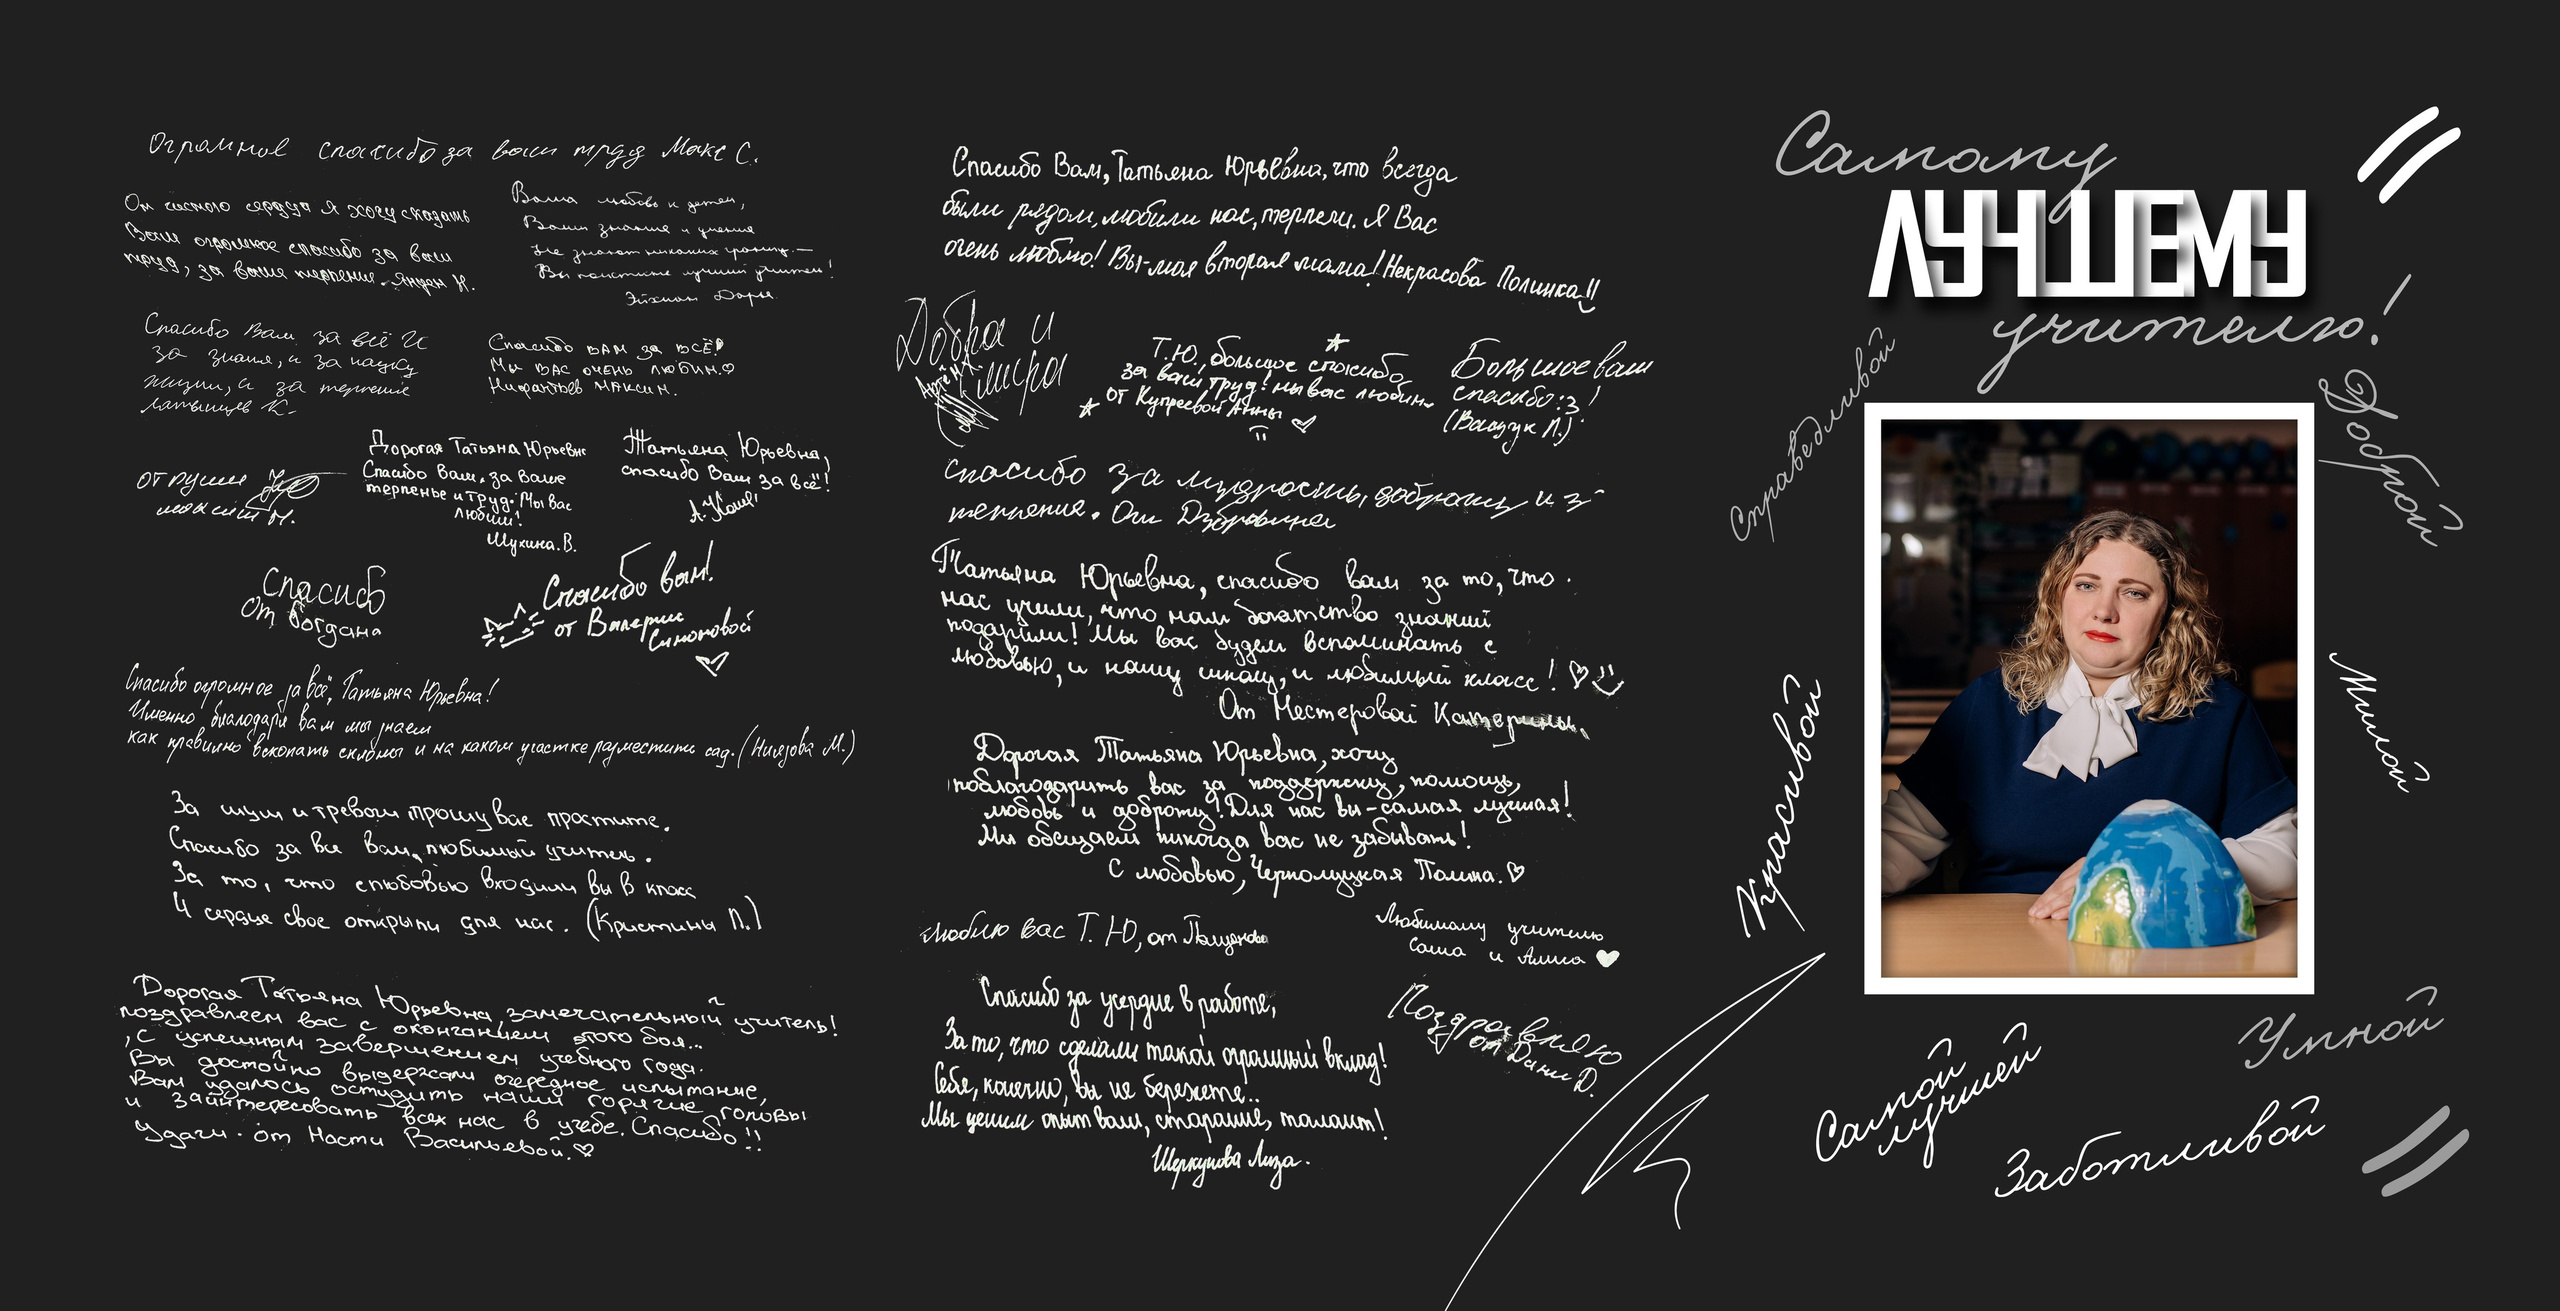 Огромное спасибо за ваш труд Макс С.
От чистого сердца я хочу сказать
Вам огромное спасибо за ваш
труд, за ваше терпение.
Ваша любовь к детям,
Ваши знания и умения
Не знают никаких границ —
Вы поистине лучший учитель!
Дарья
Спасибо Вам за всё И
за знания, и за науку
жизни, и за терпение
Латынцев К.
Спасибо ВАМ за ВСЁ!
Мы ВАС очень любим.♡
Нифантьев Максим.
от души
максим М.
Дорогая Татьяна Юрьевна
Спасибо Вам, за ваше
терпенье и труд. Мы вас
любим!
Щукина. В.
Татьяна Юрьевна,
спасибо Вам за всё!
Спасибо
от Богдана
Спасибо вам!
от Валерии
Симоновой
♡
Спасибо огромное за всё, Татьяна Юрьевна!
Именно благодаря вам мы знаем
как правильно вскопать склоны и на каком участке разместить сад. (Ниязова М.)
За шум и тревоги прошу вас простите.
Спасибо за все Вам, любимый учитель.
За то, что с любовью входили вы в класс
И сердце свое открыли для нас. (Кристины П.)
Дорогая Татьяна Юрьевна, замечательный учитель!
поздравляем вас с окончанием этого боя...
, с успешным завершением учебного года.
Вы достойно выдержали очередное испытание,
Вам удалось остудить наши горячие головы
и заинтересовать всех нас в учебе. Спасибо!!
Удачи. от Насти Васильевой.♡
Спасибо Вам, Татьяна Юрьевна, что всегда
были рядом, любили нас, терпели. Я Вас
очень люблю! Вы-моя вторая мама! Некрасова Полинка!!
Добра и
мира
Артём
Т.Ю., большое спасибо
за ваш труд! мы вас любим
от Купреевой Анны
Большое вам
спасибо:з !
спасибо за мудрость, доброту и за
терпение. От
Татьяна Юрьевна, спасибо вам за то, что
нас учили, что нам богатство знаний
подарили! Мы вас будем вспоминать с
любовью, и нашу школу, и любимый класс! ♡
От Нестеровой Катерины
Дорогая Татьяна Юрьевна, хочу
поблагодарить вас за поддержку, помощь,
любовь и доброту! Для нас вы-самая лучшая!
Мы обещаем никогда вас не забывать!
С любовью, Чернолуцкая Полина.♡
Люблю вас Т.Ю, от
Любимому учителю
Саша и Алиса ♥
Спасибо за усердие в работе,
За то, что сделали такой огромный вклад!
Себя, конечно, вы не бережете..
Мы ценим опыт ваш, старание, талант!
Шеркунова Лиза.
Поздравляю
от Дани Д.
Самому
ЛУЧШЕМУ
учителю!
Справедливой
Доброй
Милой
Красивой
Умной
Самой
лучшей
Заботливой